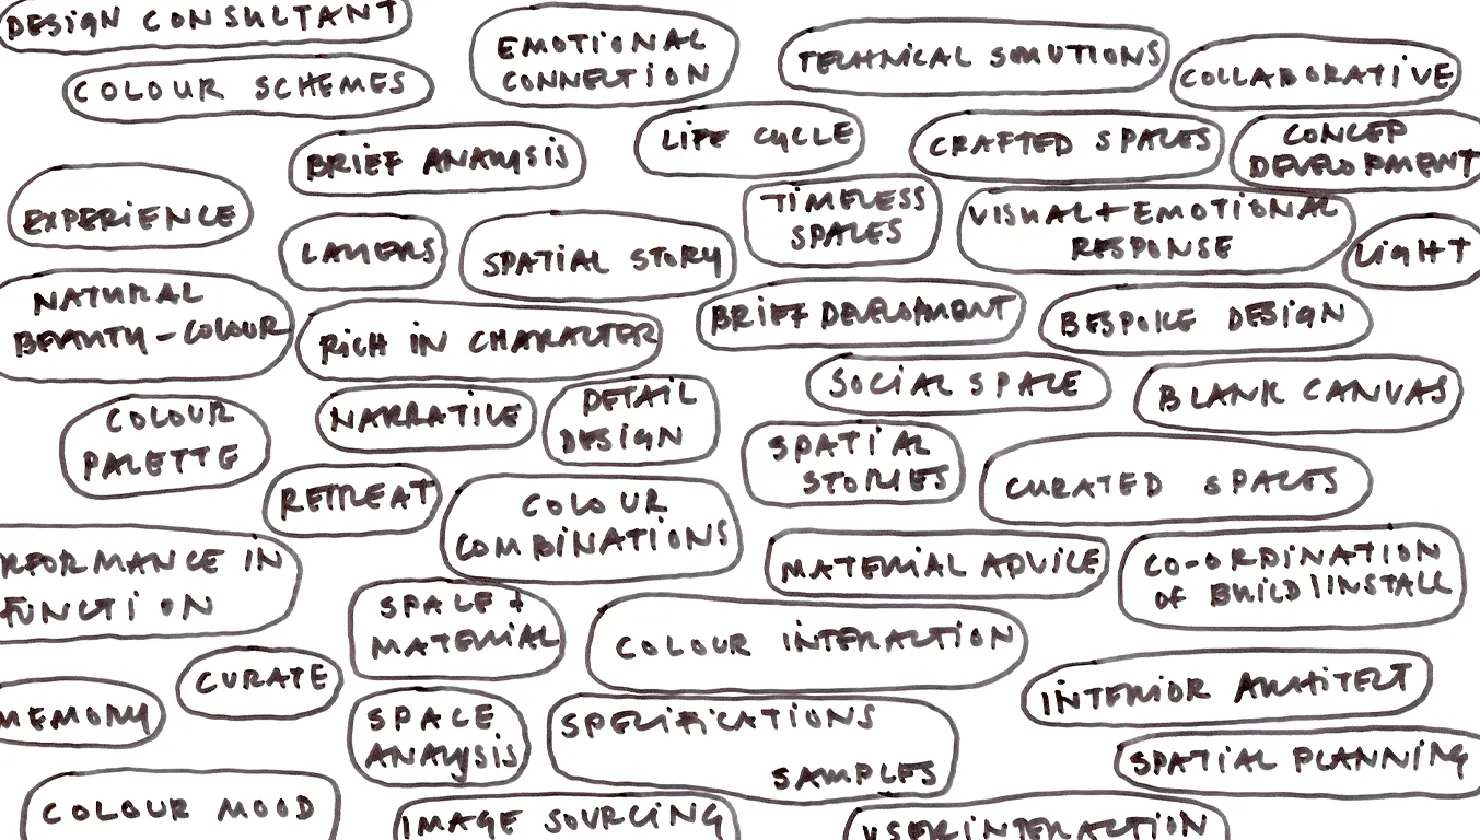 DESIGN CONSULTANT
EMOTIONAL
CONNECTION
TECHNICAL SOLUTIONS
COLLABORATIVE
COLOUR SCHEMES
BRIEF ANALYSIS
LIFE CYCLE
CRAFTED SPACES
CONCEP
DEVELOPMENT
EXPERIENCE
LAYERS
SPATIAL STORY
TIMELESS
SPACES
VISUAL + EMOTIONAL
RESPONSE
LIGHT
NATURAL
BEAUTY - COLOUR
RICH IN CHARACTER
BRIEF DEVELOPMENT
BESPOKE DESIGN
SOCIAL SPACE
BLANK CANVAS
COLOUR
PALETTE
NARRATIVE
DETAIL
DESIGN
SPATIAL
STORIES
CURATED SPACES
RETREAT
COLOUR
COMBINATIONS
RFORMANCE IN
FUNCTION
MATERIAL ADVICE
CO-ORDINATION
OF BUILD/INSTALL
SPACE +
MATERIAL
COLOUR INTERACTION
CURATE
INTERIOR ARCHITECT
MEMORY
SPACE
ANALYSIS
SPECIFICATIONS
SAMPLES
SPATIAL PLANNING
COLOUR MOOD
IMAGE SOURCING
USER INTERACTION